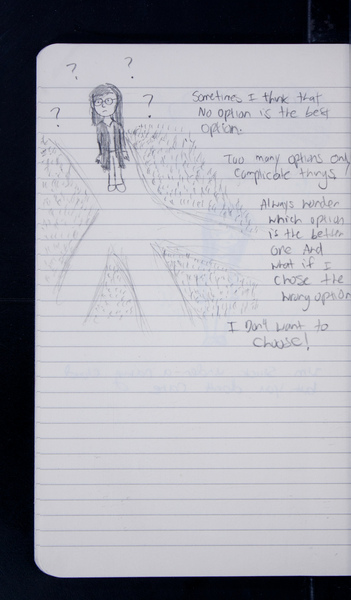 ? ?
? ?
Sometimes I think that
No option is the best
option.
Too many options only
complicate things
Always wonder
which option
is the better
one And
what if I
chose the
wrong option
I Don't want to
choose!